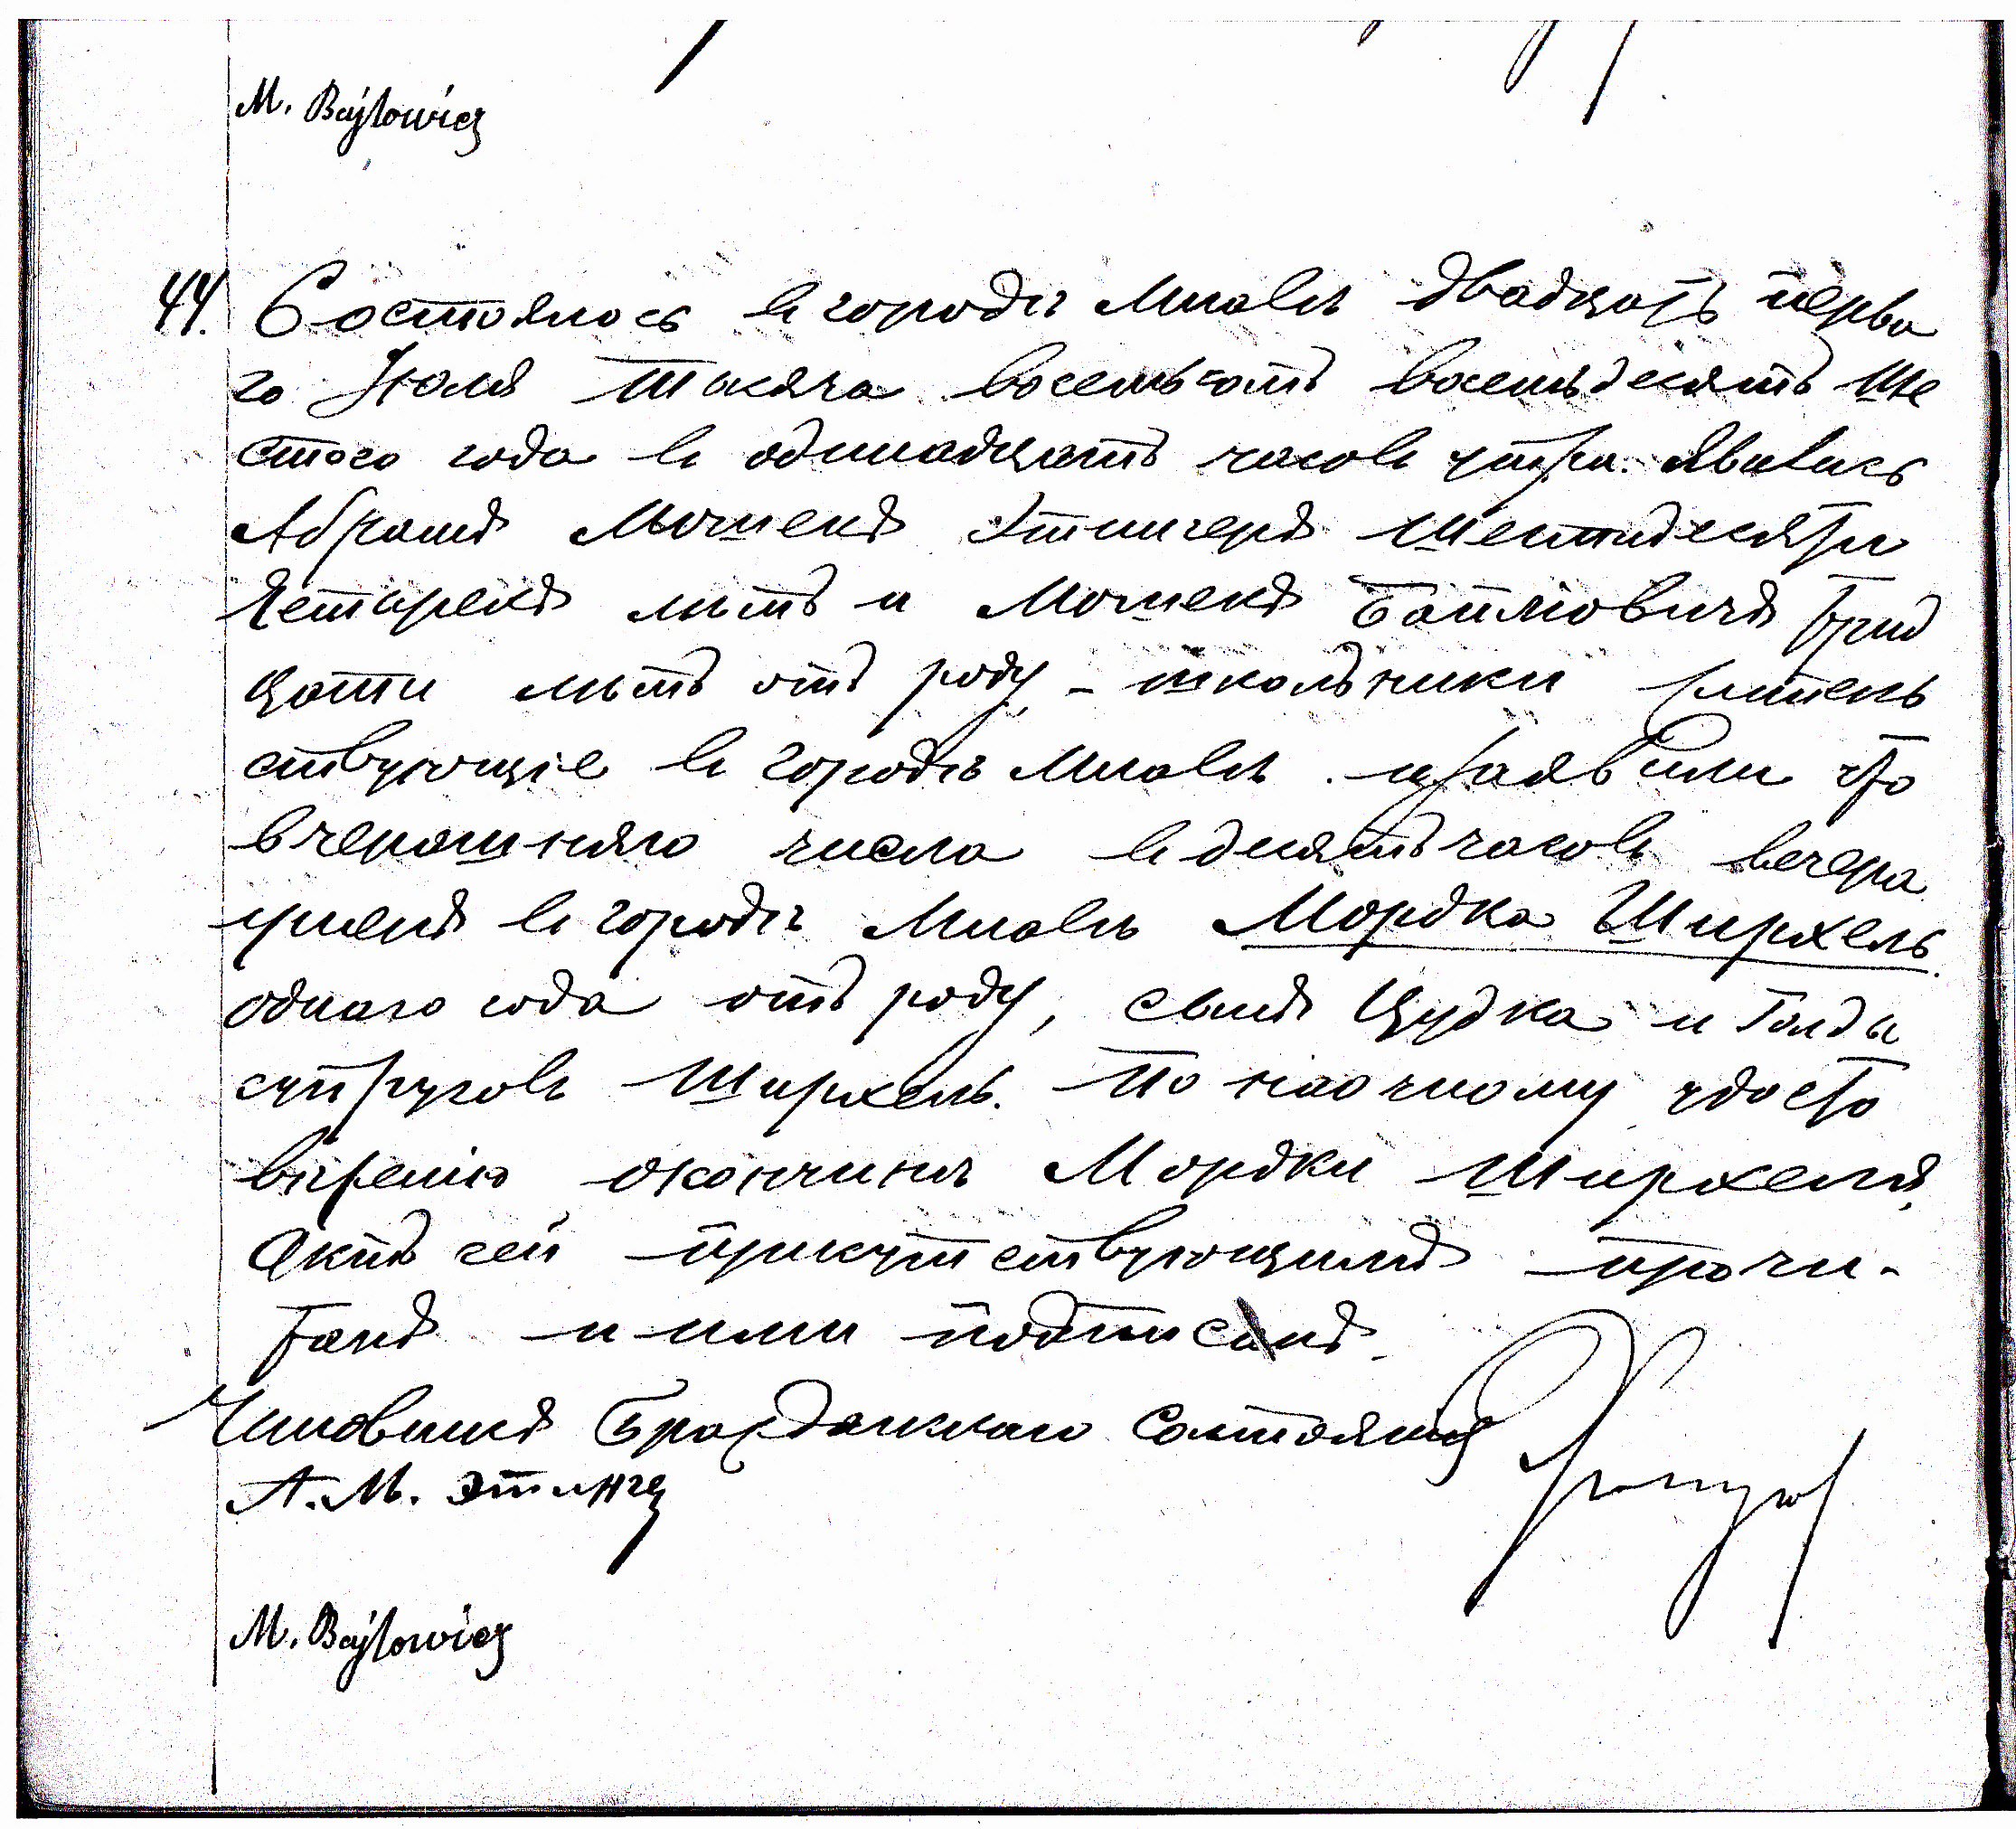 M. Bajtowicz
44. Состоялось въ городѣ Млавѣ двадцать перва
го Іюля тысяча восемьсотъ восемьдесятъ ше
стого года въ одинадцать часовъ утра. Явились
Абрамъ Мошекъ Этингеръ шестидесяти
четырехъ лѣтъ и Мошекъ Байтловичъ трид
цати лѣтъ отъ роду, - школьники житель
ствующіе въ городѣ Млавѣ и заявили что
вчерашняго числа въ десять часовъ вечера
умеръ въ городѣ Млавѣ Мордка Ширхель
одного года отъ роду, сынъ Цудка и Голды
супруговъ Ширхель. По наочному удосто
вѣренію окончинѣ Мордки Ширхеля,
Актъ сей присутствующимъ прочи-
танъ и ими подписанъ.
Чиновникъ Гражданскаго Состоянія
А. М. Этингер
M. Bajtowicz